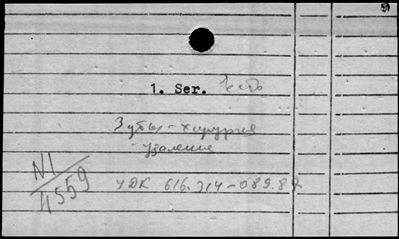 9
1. Ser. Есть
Зубы - хирургия
удаление
N1/4559
УДК 616.314-089.87